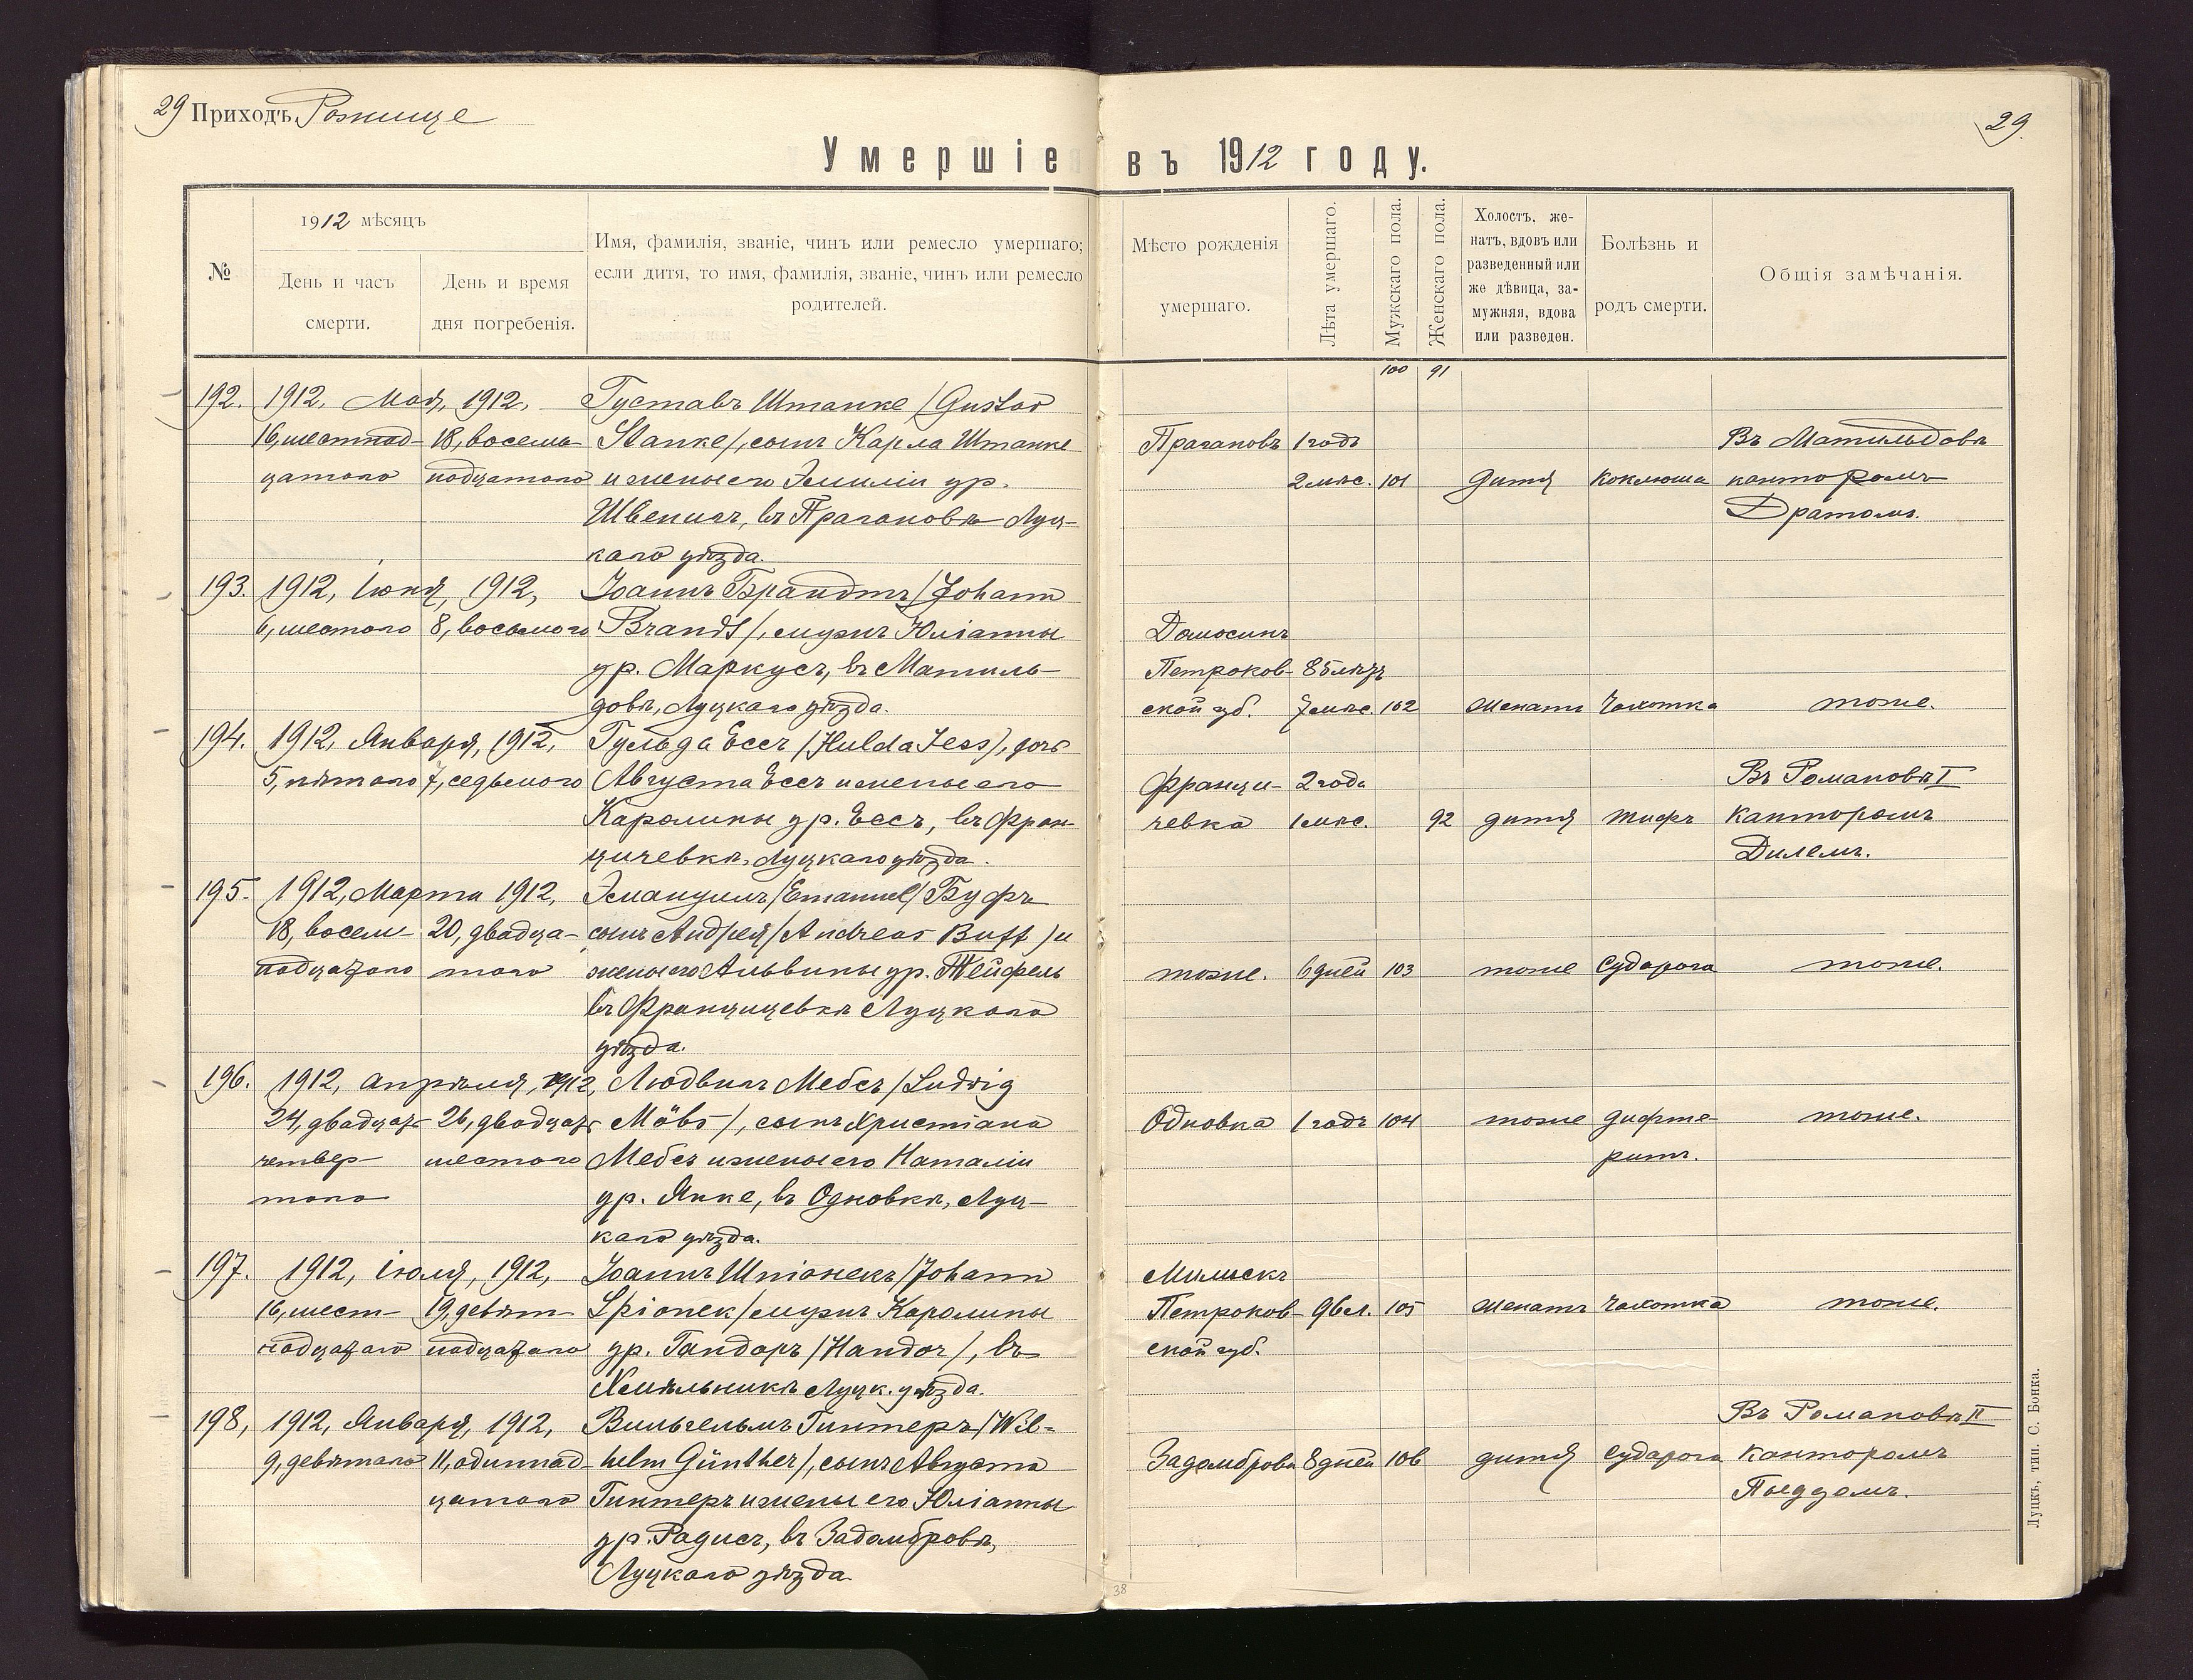 29 Приходъ Рожище
29.
Умершіе въ 1912 году.
№
1912 мѣсяцъ
День и часъ
смерти.
День и время
дня погребенія.
Имя, фамилія, званіе, чинъ или ремесло умершаго;
если дитя, то имя, фамилія, званіе, чинъ или ремесло
родителей.
Мѣсто рожденія
умершаго.
Лѣта умершаго.
Мужскаго пола.
Женскаго пола.
Холостъ, же-
натъ, вдовъ или
разведенный или
же дѣвица, за-
мужняя, вдова
или разведен.
Болѣзнь и
родъ смерти.
Общія замѣчанія.
100 91
192. 1912, Мая, 1912, Густавъ Штанке /Gustav
16, шестнад- 18, восемь- Stanke/, сынъ Карла Штанке Прагановъ 1 годъ Въ Матильдовѣ
цатого надцатого и жены его Эмиліи ур. 2 мѣс. 101 дитя коклюша канторомъ
Швенигъ, въ Прагановѣ Луц- Дратомъ.
каго уѣзда.
193. 1912, Іюня, 1912, Іоаннъ Брандтъ /Johann
6, шестого 8, восьмого Brandt/, мужъ Юліанны Домосинъ
ур. Маркусъ, въ Матиль- Петроков- 85 лѣтъ
довѣ, Луцкаго уѣзда. ской губ. 7 мѣс. 102 женатъ чахотка тоже.
194. 1912, Января, 1912, Гульда Ессъ /Hulda Jess/, дочь
5, пятаго 7, седьмого Августа Ессъ и жены его Франци- 2 года Въ Романовѣ I
Каролины ур. Ессъ, въ Фран- чевка 1 мѣс. 92 дитя тифъ канторомъ
цичевкѣ, Луцкаго уѣзда. Дилемъ.
195. 1912, Марта 1912, Эмануилъ /Emanuel/ Буфъ
18, восем- 20, двадца- сынъ Андрея /Andreas Buff/ и
надцатаго таго жены его Альвины ур. Тейфель тоже. 6 дней 103 тоже судорога тоже.
въ Францицевкѣ Луцкаго
уѣзда.
196. 1912, Апрѣля, 1912, Людвигъ Мебсъ /Ludwig
24, двадцат 26, двадцат Möbs/, сынъ Христіана Одновка 1 годъ 104 тоже дифте- тоже.
четвер- шестого Мебсъ и жены его Наталіи ритъ.
таго ур. Янке, въ Одновкѣ, Луц-
каго уѣзда.
197. 1912, Іюля, 1912, Іоаннъ Шпіонекъ /Johann Милыскъ
16, шест- 19, девят- Spionek/ мужъ Каролины Петроков- 96 л. 105 женатъ чахотка тоже.
надцатаго надцатаго ур. Гандоръ /Handor/, въ ской губ.
Хмѣльникѣ Луцк. уѣзда.
198, 1912, Января, 1912, Вильгельмъ Гинтеръ /Wil- Въ Романовѣ II
9, девятаго 11, одиннад- helm Günther/, сынъ Августа Задомброва 8 дней 106 дитя судорога канторомъ
цатаго Гинтеръ и жены его Юліанны
ур. Радисъ, въ Задомбровѣ,
Луцкаго уѣзда
Луцкъ, тип. С. Бонка.
38